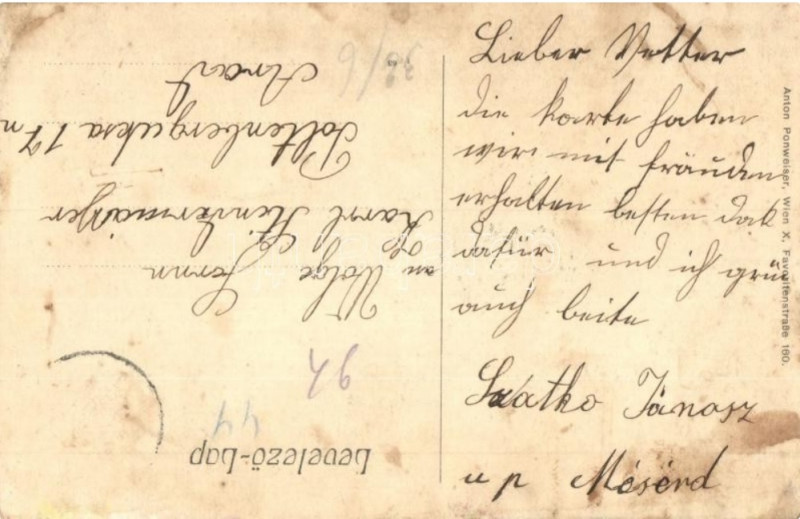 Lieber Vetter
die Karte haben
wir mit fräuden
erhalten besten dak
dafür und ich grü
auch beite
Szatko Jánosz
u p Mésérd
Anton Ponweiser, Wien X, Favoritenstraße 160.
Levelező-Lap
44
94
an Wolge Herrn
Karl
Poltenberg utksa 17 n
Arad